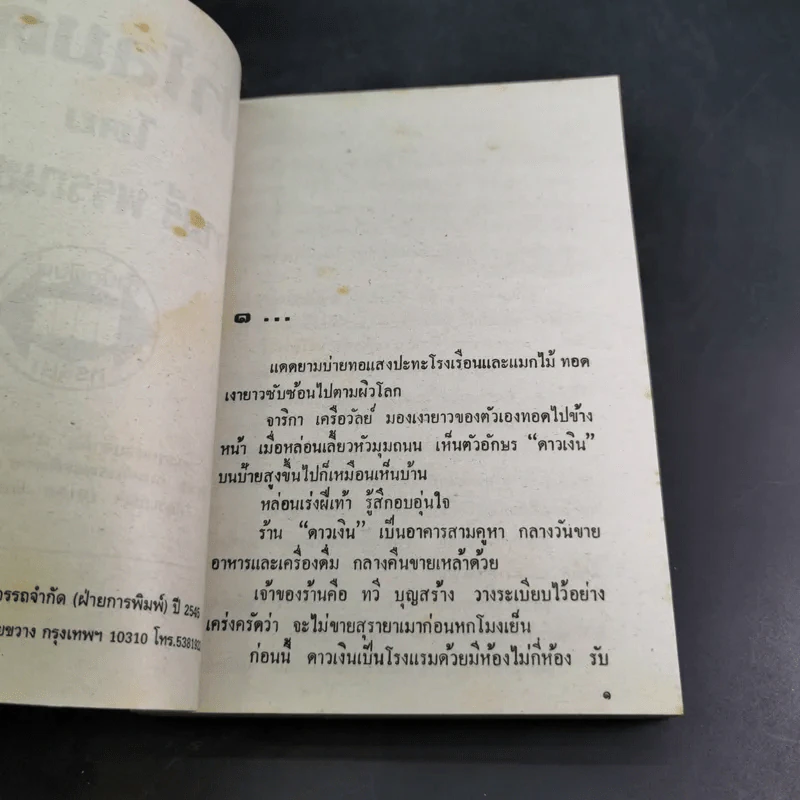 โดย
วรรถจำกัด (ฝ่ายการพิมพ์) ปี 2545
ยขวาง กรุงเทพฯ 10310 โทร.538
๑ ...
แดดยามบ่ายทอแสงปะทะโรงเรือนและแมกไม้ ทอด
เงายาวซับซ้อนไปตามผิวโลก
จาริกา เครือวัลย์ มองเงายาวของตัวเองทอดไปข้าง
หน้า เมื่อหล่อนเลี้ยวหัวมุมถนน เห็นตัวอักษร “ดาวเงิน”
บนป้ายสูงขึ้นไปก็เหมือนเห็นบ้าน
หล่อนเร่งฝีเท้า รู้สึกอบอุ่นใจ
ร้าน “ดาวเงิน” เป็นอาคารสามคูหา กลางวันขาย
อาหารและเครื่องดื่ม กลางคืนขายเหล้าด้วย
เจ้าของร้านคือ ทวี บุญสร้าง วางระเบียบไว้อย่าง
เคร่งครัดว่า จะไม่ขายสุรายาเมาก่อนหกโมงเย็น
ก่อนนี้ ดาวเงินเป็นโรงแรมด้วยมีห้องไม่กี่ห้อง รับ
๑